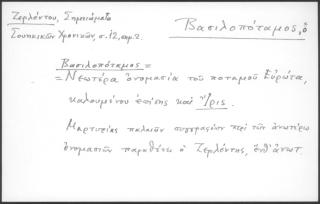 Ζερλέντου, Σημειώματα
Σουηδικῶν Χρονικῶν, σ. 12, σημ. 2.
Βασιλοπόταμος, ὁ
Βασιλοπόταμος =
= Νεωτέρα ὀνομασία τοῦ ποταμοῦ Εὐρώτα,
καλουμένου ἐπίσης καὶ Ἶρις.
Μαρτυρίας παλαιῶν συγγραφέων περὶ τῶν ἀνωτέρω
ὀνομασιῶν παραθέτει ὁ Ζερλέντης, ἔνθ' ἀνωτ.